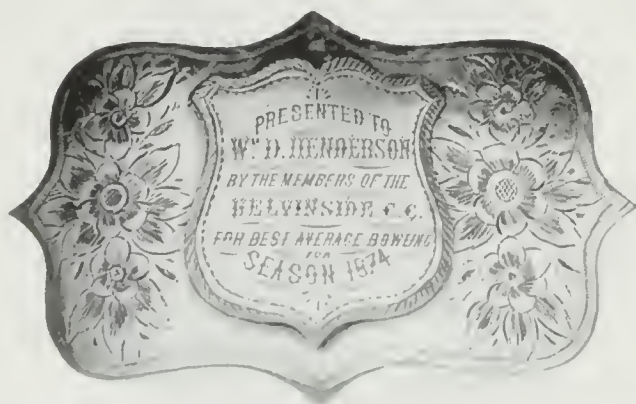 PRESENTED TO
Wᴹ D. HENDERSON
BY THE MEMBERS OF THE
KELVINSIDE C.C.
FOR BEST AVERAGE BOWLING
FOR
SEASON 1874